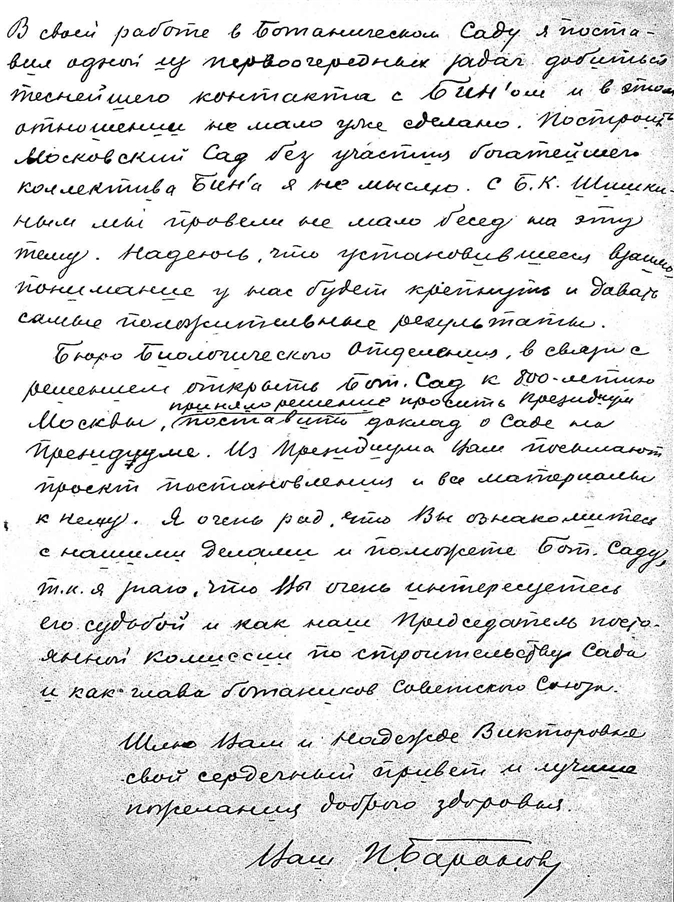 В своей работе в Ботаническом Саду я поста-
вил одной из первоочередных задач добиться
теснейшего контакта с БИН'ом и в этом
отношении не мало уже сделано. Построить
Московский Сад без участия богатейшего
коллектива БИН'а я не мыслю. С Б.К. Шишки-
ным мы провели не мало бесед на эту
тему. Надеюсь, что установившееся взаимо
понимание у нас будет крепнуть и давать
самые положительные результаты.
Бюро Биологического Отделения, в связи с
решением открыть Бот. Сад к 800-летию
приняло решение просить Президиум
Москвы, поставить доклад о Саде на
Президиуме. Из Президиума Вам посылают
проект постановления и все материалы
к нему. Я очень рад, что Вы ознакомитесь
с нашими делами и поможете Бот. Саду,
т.к. я знаю, что Вы очень интересуетесь
его судьбой и как наш Председатель посто-
янной комиссии по строительству Сада
и как глава ботаников Советского Союза.
Шлю Вам и Надежде Викторовне
свой сердечный привет и лучшие
пожелания доброго здоровья.
Ваш П. Баранов